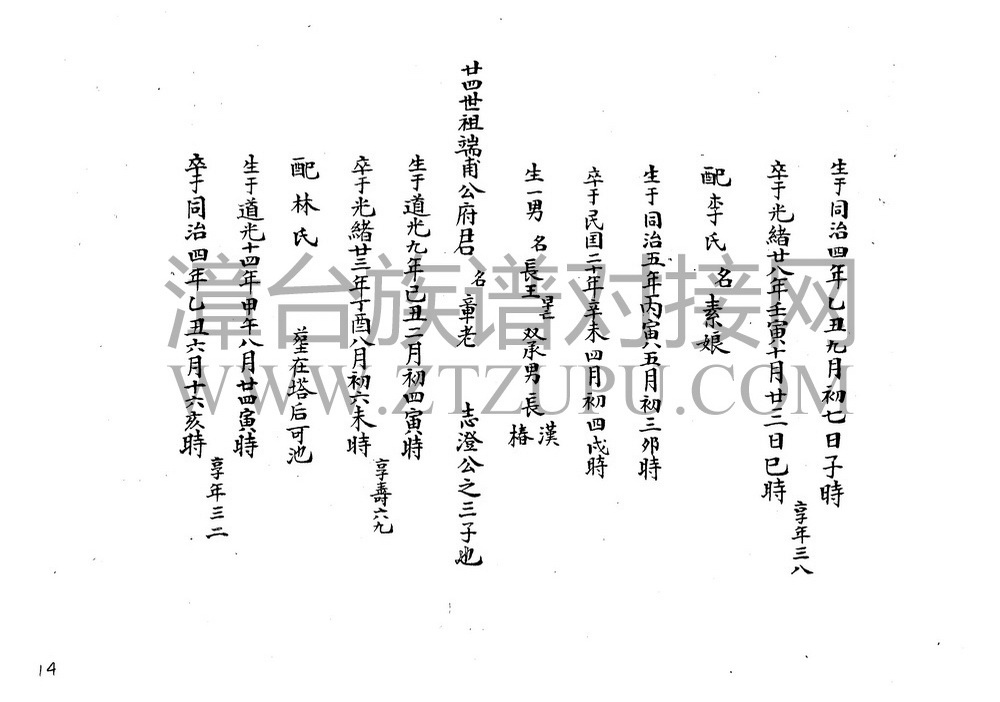 生于同治四年乙丑九月初七日子時
卒于光緒廿八年壬寅十月廿三日巳時 享年三八
配李氏 名素娘
生于同治五年丙寅五月初三卯時
卒于民囯二十年辛未四月初四戌時
生一男 名長 双承男長漢 椿
廿四世祖端甫公府君 名章老 志澄公之三子也
生于道光九年己丑二月初四寅時
卒于光緒廿三年丁酉八月初六未時 享壽六九
配林氏 塋在塔后可池
生于道光十四年甲午八月廿四寅時
卒于同治四年乙丑六月十六亥時 享年三二
漳台族谱对接网
WWW.ZTZUPU.COM
14